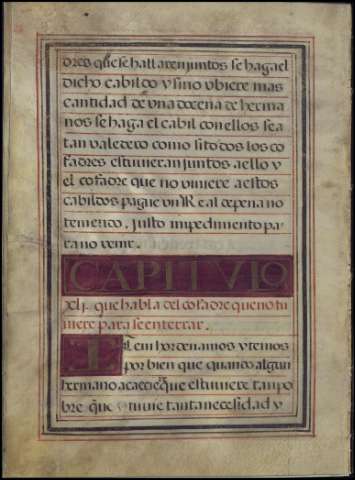 ores que se hallaren juntos se haga el
dicho cabildo y sino ubiere mas
cantidad de una docena de herma
nos se haga el cabil con ellos sea
tan valedero como si todos los co
fadres estuvieran juntos a ello y
el cofadre que no viniere a estos
cabildos pague un R̃ eal de pena no
teniendo justo impedimento pa-
ra no venir.
CAPITVLO
xlj. que habla del cofadre que no tu
uiere para se enterrar.
ITem hordenamos y tenemos
por bien que quando algun
hermano acaeciere que estuuiere tan po
bre que tuuie tanta necesidad y